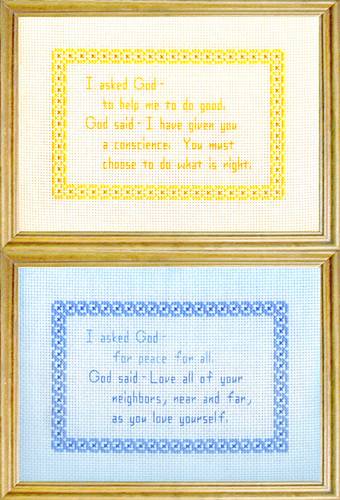 I asked God -
to help me to do good.
God said - I have given you
a conscience. You must
choose to do what is right.
I asked God -
for peace for all.
God said - Love all of your
neighbors, near and far,
as you love yourself.